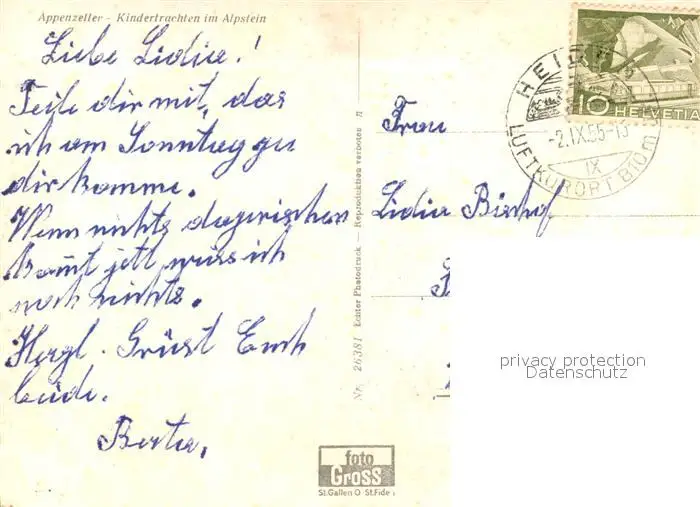 Appenzeller - Kindertrachten im Alpstein
Liebe Lidia!
Teile dir mit, das
ich am Sonntag zu
dir komme.
Wenn nichts dazwischen
kommt jetzt weis ich
noch nichts.
Herzl. Grüsst Euch
beide.
Berta.
Nr. 26381 Echter Photodruck — Reproduktion verboten
foto
Gross
St.Gallen O St.Fide
HEIDEN
-2.IX.55-15
IX
LUFTKURORT 810m
10 HELVETIA
Frau
Lidia Bischof
privacy protection
Datenschutz